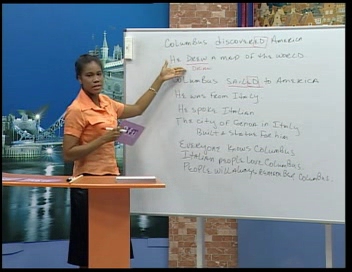 Columbus discovered America
He drew a map of the world
Columbus sailed to America
He was from Italy
He spoke Italian
The city of Genoa in Italy
Built a statue for him
Everyone knows Columbus
Italian people love Columbus
People will always remember Columbus.